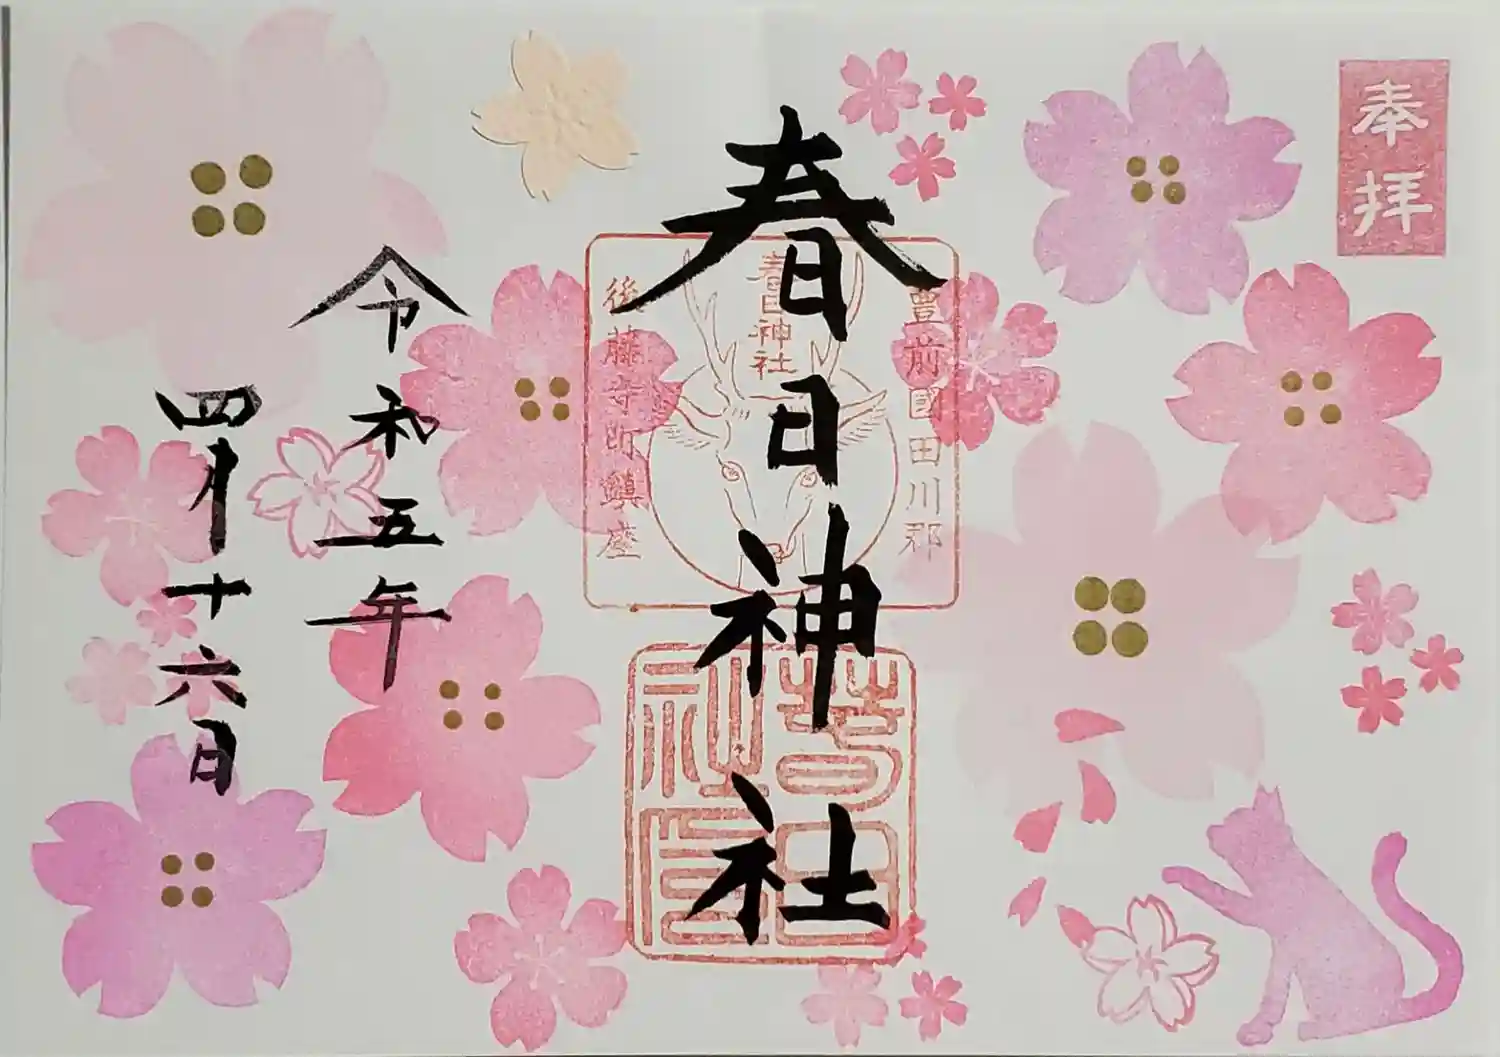 奉拝
春日神社
豊前國田川郡
春日神社
後藤寺町鎮座
春日社印
令和五年
四月十六日